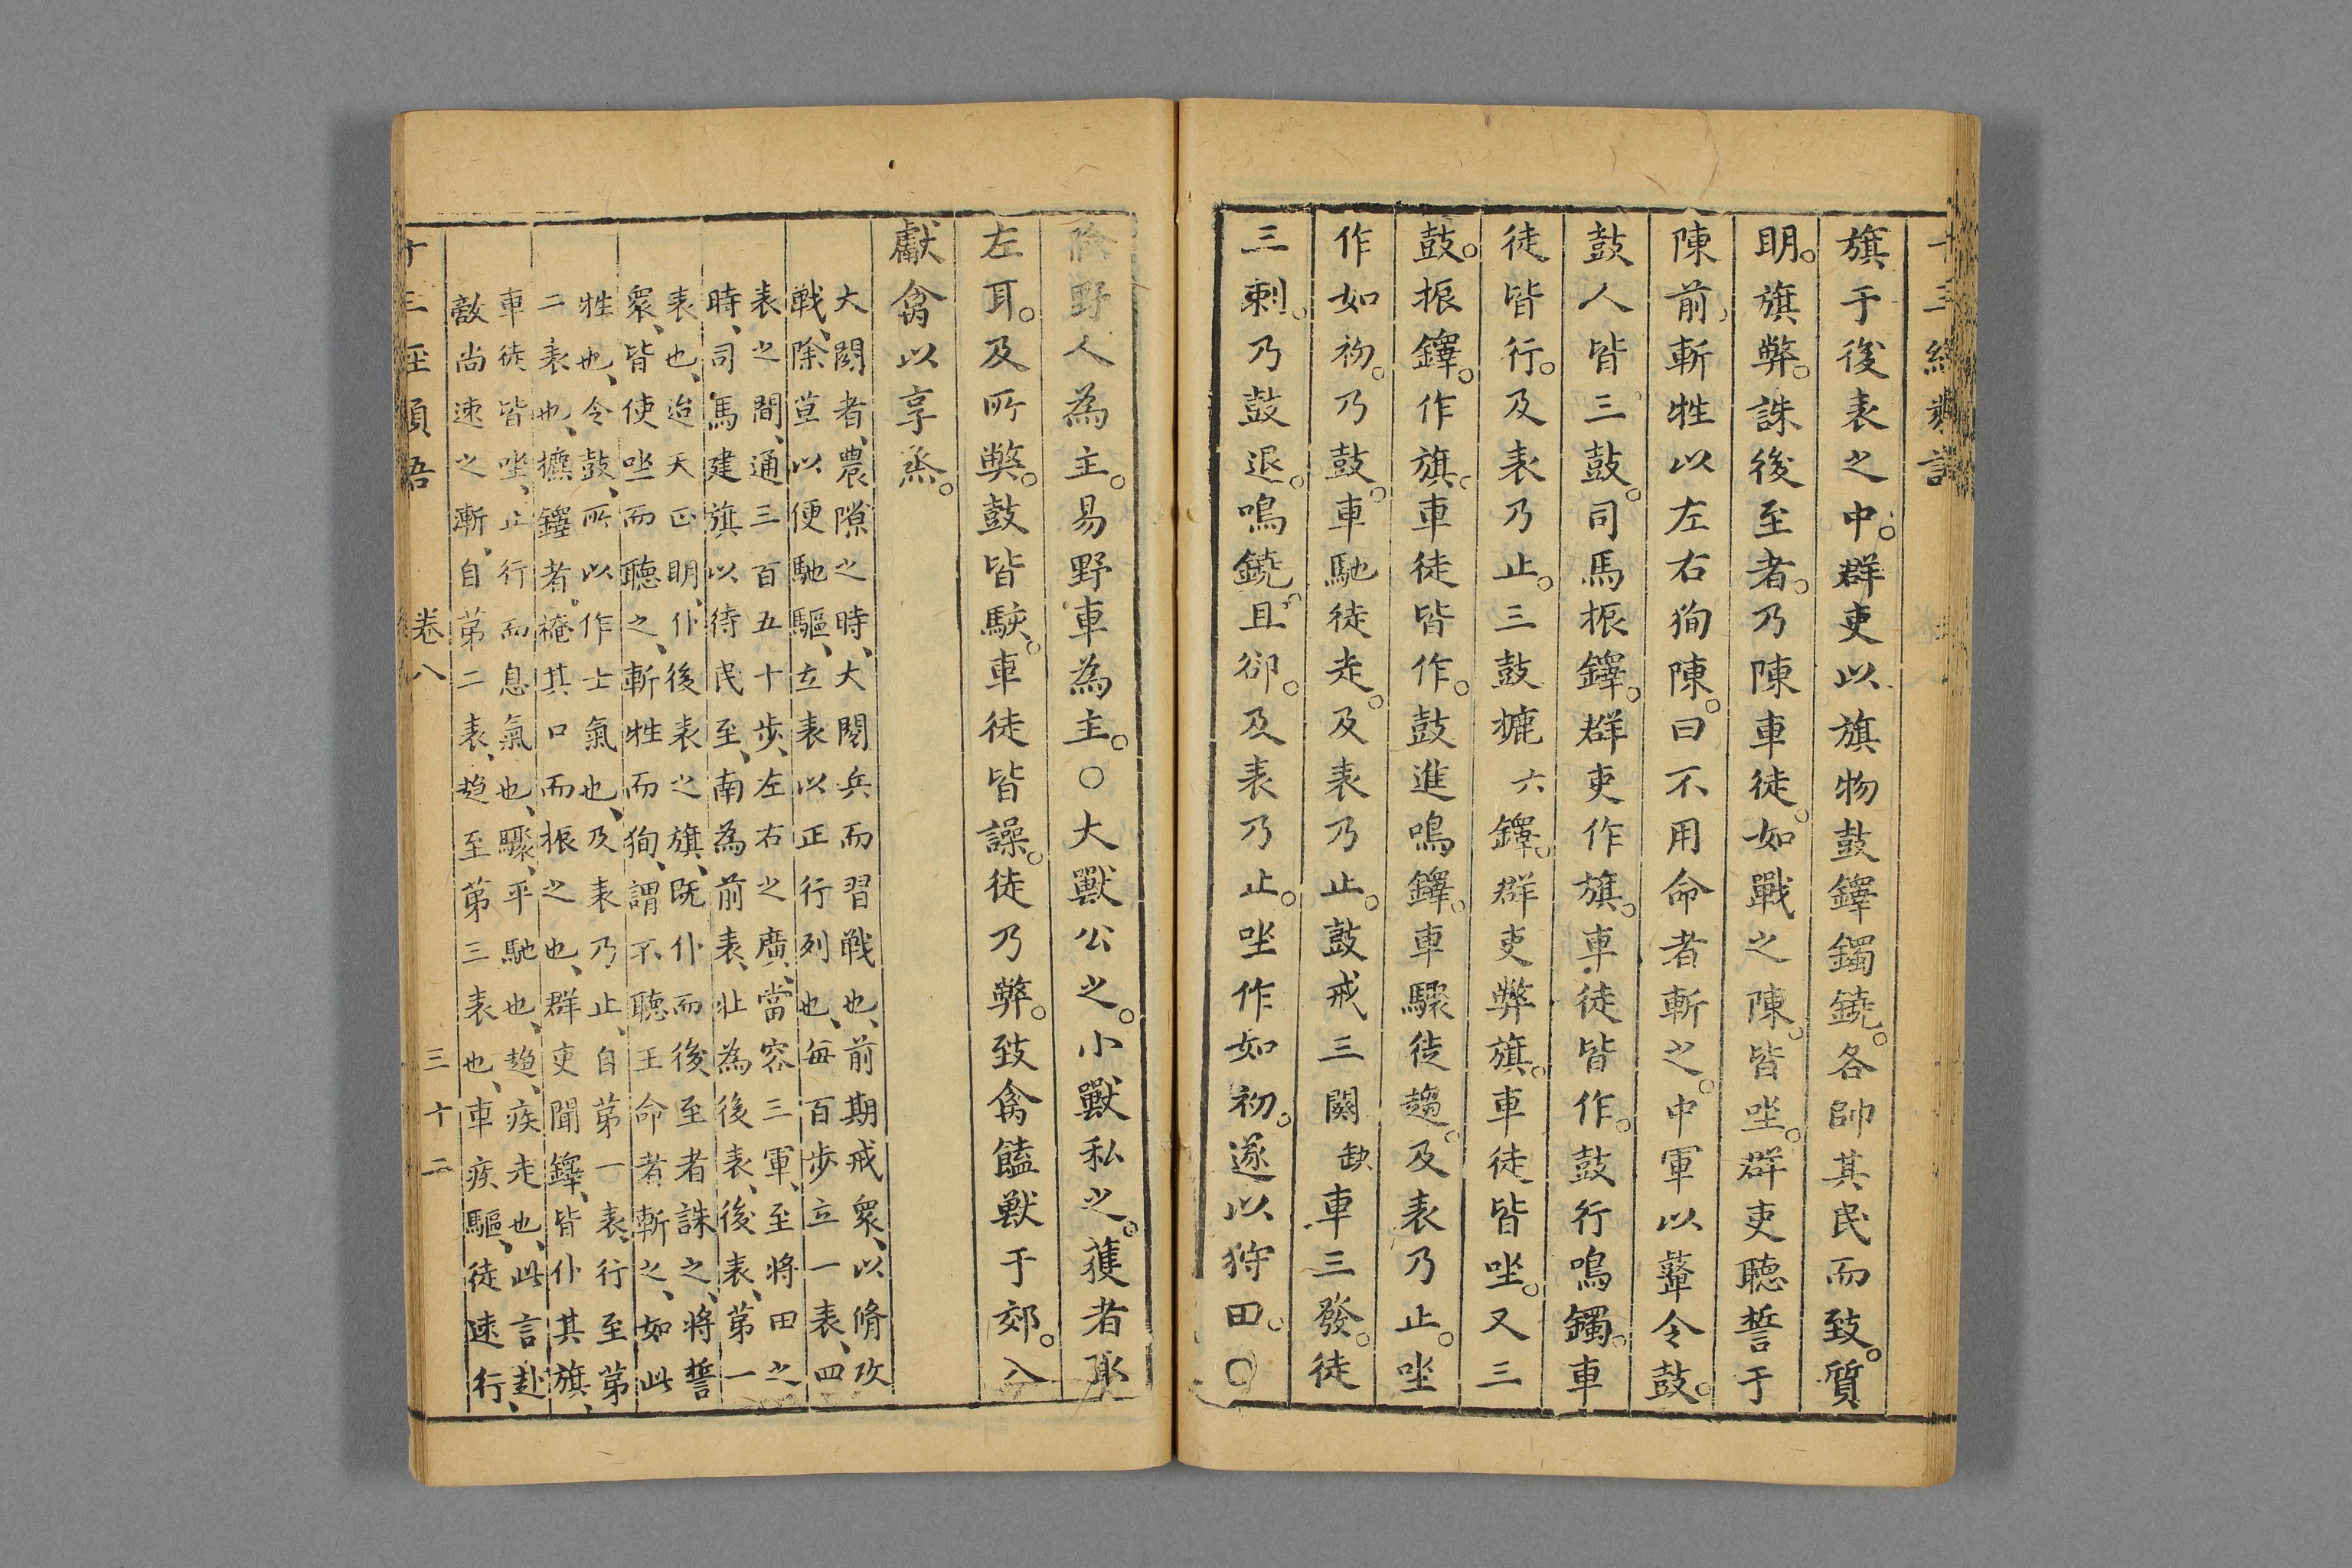 旗于後表之中。群吏以旗物鼓鐸鐲鐃。各帥其民而致。質
明。旗弊。誅後至者。乃陳車徒。如戰之陳。皆坐。群吏聽誓于
陳前、斬牲以左右狥陳。曰不用命者斬之。中軍以鼙令鼓。
鼓人皆三鼓。司馬振鐸。群吏作旗。車徒皆作。鼓行鳴鐲。車
徒皆行。及表乃止。三鼓摝六鐸。群吏弊旗。車徒皆坐。又三
鼓。振鐸。作旗。車徒皆作。鼓進鳴鐸。車驟徒趨。及表乃止。坐
作如初。乃鼓。車馳徒走。及表乃止。鼓戒三闋缺車三發。徒
三刺。乃鼓退。鳴鐃。且卻。及表乃止。坐作如初。遂以狩田。○
險野人為主。易野車為主。○大獸公之。小獸私之。獲者取
左耳。及所弊。鼓皆駴。車徒皆譟。徒乃弊。致禽饁獸于郊。入
獻禽以享烝。
大閱者、農隙之時、大閱兵而習戰也、前期戒衆、以脩攻
戰、除草以便馳驅、立表以正行列也、每百步立一表、四
表之間、通三百五十步、左右之廣、當容三軍、至將田之
時、司馬建旗以待民至、南為前表、北為後表、後表、第一
表也、迨天正明、仆後表之旗、既仆而後至者誅之、將誓
衆、皆使坐而聽之、斬牲而狥、謂不聽王命者斬之、如此
牲也、令鼓、所以作士氣也、及表乃止、自第一表、行至第
二表也、摝鐸者、掩其口而振之也、群吏聞鐸、皆仆其旗、
車徒皆坐、止行而息氣也、驟、平馳也、趨、疾走也、此言赴
敵尚速之漸、自第二表、趨至第三表也、車疾驅、徒速行、
卷八
三十二